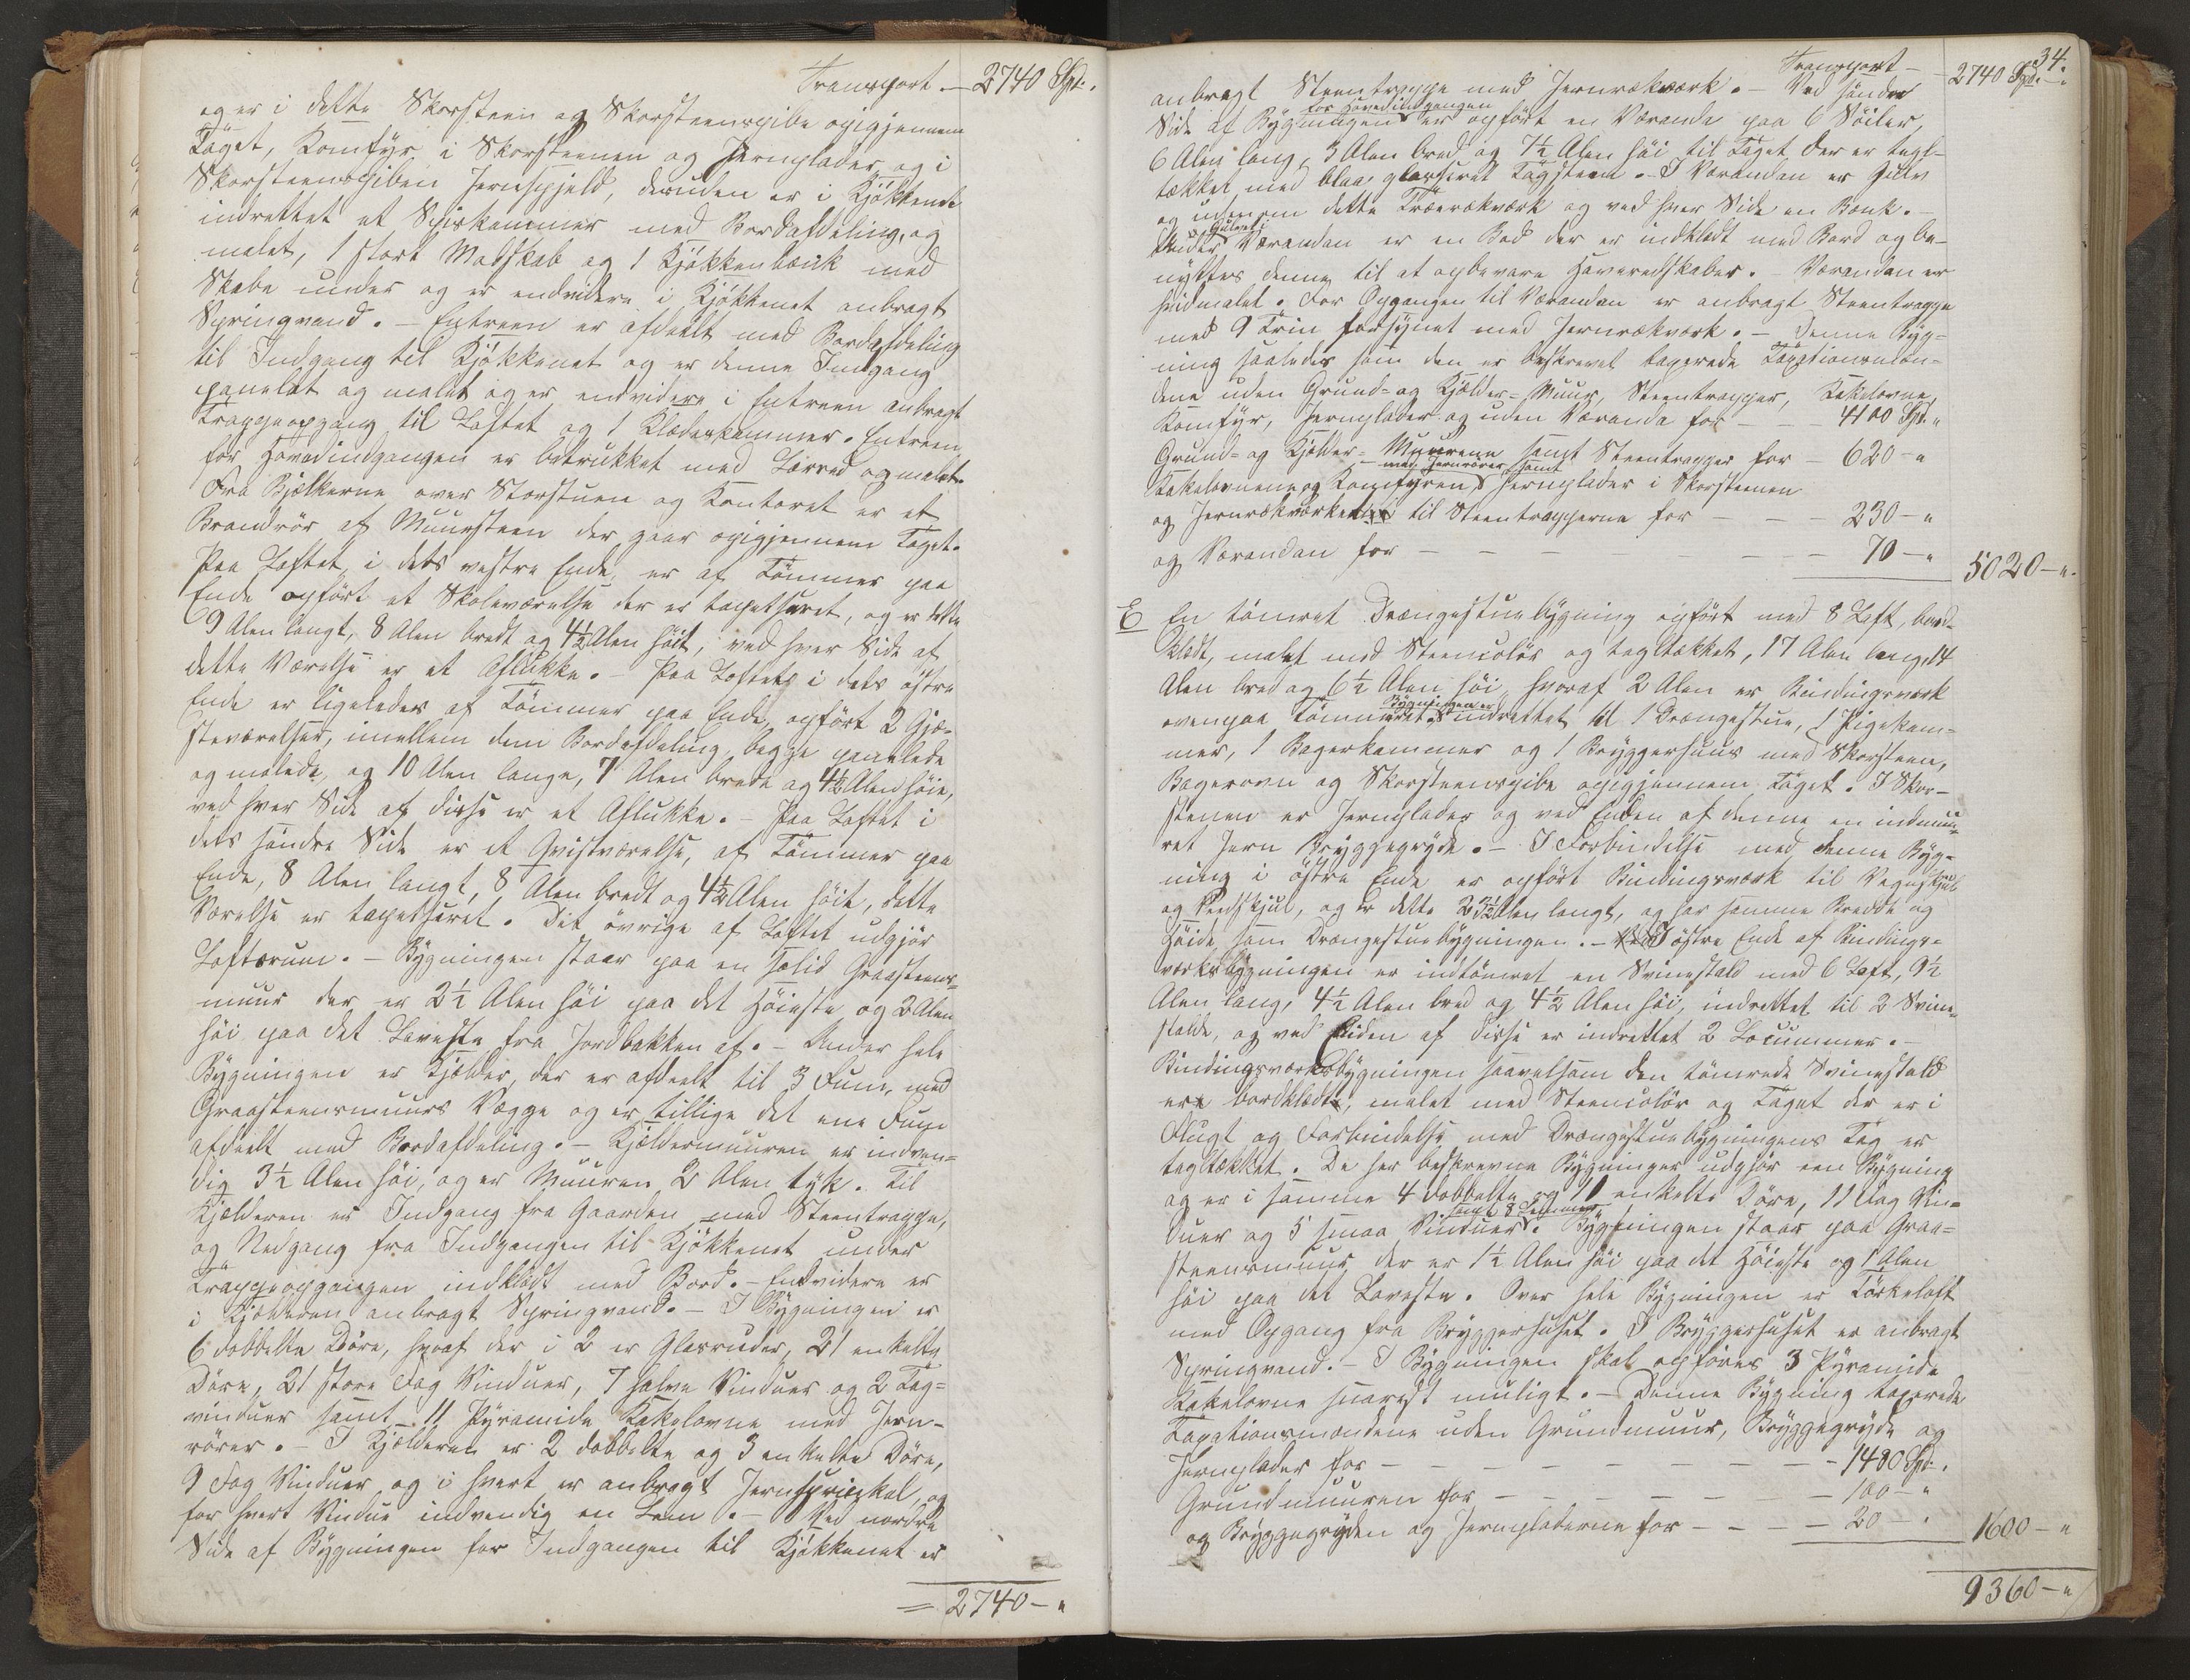 Transport - 2740 Spd.
og er i dette Skorsteen og Skorsteenspibe opigjennem
Taget, Komfyr i Skorsteenen og Jernplader og i
Skorsteenspiben Jernspjeld, desuden er i Kjøkkenet
indrettet et Spiskammer med Bordafdeling, og
malet, 1 stort Madskab og 1 Kjøkkenbænk med
Skabe under og er endvidere i Kjøkkenet anbragt
Springvand. - Entreen er afdeelt med Bordafdeling
til Indgang til Kjøkkenet og er denne Indgang
panelet og malet og er endvidere i Entreen anbragt
Trappeopgang til Loftet og 1 Klædeskammer. Entreen
for Hovedindgangen er betrukket med Lærred og malet.
Fra Bjelkerne over Storstuen og Kontoret er et
Brandrør af Muursteen der gaar opigjennem Taget.
Paa Loftet, i dets vestre Ende, er af Tømmer paa
Ende opført et Skoleværelse der er tapetseret, og er dette
9 Alen langt, 8 Alen bredt og 4½ Alen høit, ved hver Side af
dette Værelse er et Aflukke. - Paa Loftet i dets østre
Ende er ligeledes af Tømmer paa Ende, opført 2 Gjæ-
steværelser, imellem dem Bordafdeling, begge panelede
og malede, og 10 Alen lange, 7 Alen brede og 4½ Alen høie,
ved hver Side af disse er et Aflukke. - Paa Loftet i
dets søndre Side er et Qvistværelse, af Tømmer paa
Ende, 8 Alen langt, 8 Alen bredt og 4½ Alen høit, dette
Værelse er tapetseret. Det øvrige af Loftet udgjør
Loftsrum. - Bygningen staar paa en solid Graasteens-
muur der er 2½ Alen høi paa det Høieste og 2 Alen
høi paa det Laveste fra Jordbakken af. - Under hele
Bygningen er Kjælder, der er afdeelt til 3 Rum, med
Graasteensmuurs Vægge og er tillige det ene Rum
afdeelt med Bordafdeling. - Kjældermuuren er indven-
dig 3½ Alen høi, og er Muuren 2 Alen tyk. Til
Kjælderen er Indgang fra Gaarden med Steentrappe,
og Nedgang fra Indgangen til Kjøkkenet under
Trappeopgangen indklædt med Bord. - Endvidere er
i Kjælderen anbragt Springvand. - I Bygningen er
6 dobbelte Døre, hvoraf der i 2 er Glasruder, 21 enkelte
Døre, 21 store Fag Vinduer, 7 halve Vinduer og 2 Tag-
vinduer samt 11 Pyramide Kakelovne med Jern-
rører. - I Kjælderen er 2 dobbelte og 3 enkelte Døre,
9 Fag Vinduer og i hvert er anbragt Jernsprinkel, og
for hvert Vindue indvendig en Lem. - Ved nordre
Side af Bygningen for Indgangen til Kjøkkenet er
= 2740 - "
34.
Transport - 2740 Spd. "
anbragt Steentrappe med Jernrækværk. - Ved søndre
for Hovedindgangen
Side af Bygningen er opført en Veranda paa 6 Søiler,
6 Alen lang, 3 Alen bred og 7½ Alen høi til Taget der er tegl-
tækket med blaa, glasseret Tagsteen. - I Verandan er Gulv
og udenom dette Trærækværk og ved hver Side en Bænk. -
Gulvet i
Under Verandan er en Bod der er indklædt med Bord og be-
nyttes denne til at opbevare Haveredskaber. - Verandan er
hvidmalet. For Opgangen til Verandan er anbragt Steentrappe
med 9 Trin forsynet med Jernrækværk. - Denne Byg-
ning saaledes som den er beskrevet taxerede Taxationsmæn-
dene uden Grund- og Kjælder-Muur, Steentrapper, Kakelovne,
Komfyr, Jernplader og uden Veranda for - - - 4100 Spd. "
Grund- og Kjælder-Muurene samt Steentrapper for - 620 - "
med Jernrører, samt
Kakelovnene og Komfyren Jernplader i Skorsteenen
og Jernrækværket til Steentrapperne for - - - 230 - "
og Verandan for - - - - - - - 70 - "
5020 - ".
E En tømret Drængestuebygning opført med 8 Laft, bord-
klædt, malet med Steencolør og tegltækket, 17 Alen lang, 14
Alen bred og 6½ Alen høi, hvoraf 2 Alen er Bindingsværk
Bygningen er
ovenpaa Tømmeret, indrettet til 1 Drængestue, 1 Pigekam-
mer, 1 Bagerkammer og 1 Bryggerhuus med Skorsteen,
Bagerovn og Skorsteenspibe opigjennem Taget. I Skor-
stenen er Jernplader og ved Enden af denne en indmuu-
ret Jern Bryggegryde. - I Forbindelse med denne Byg-
ning i østre Ende er opført Bindingsværk til Vognskjul
og Vedskjul, og er dette Alen langt, og har samme Bredde og
Høide som Drængestuebygningen. - I østre Ende af Bindings-
værksbygningen er indtømret en Svinestald med 6 Laft, 9½
Alen lang, 4½ Alen bred og 4½ Alen høi, indrettet til 2 Svine-
stalde, og ved Siden af disse er indrettet 2 Locummer. -
Bindingsværksbygningen saavelsom den tømrede Svinestald
ere bordklædte, malet med Steencolør og Taget der er i
Flugt og Forbindelse med Drængestuebygningens Tag er
tegltækket. De her beskrevne Bygninger udgjør een Bygning
og er i samme 4 dobbelte og 11 enkelte Døre, 11 Fag Vin-
samt 8 Lemmer
duer og 5 smaa Vinduer. Bygningen staar paa Graa-
steensmuur der er 1½ Alen høi paa det Høieste og 1 Alen
høi paa det Laveste. Over hele Bygningen er Tørkeloft
med Opgang fra Bryggerhuset. I Bryggerhuset er anbragt
Springvand. - I Bygningen skal opføres 3 Pyramide
Kakelovne snarest muligt. - Denne Bygning taxerede
Taxationsmændene uden Grundmuur, Bryggegryde og
Jernplader for - - - - - - - 1480 Spd. "
Grundmuuren for - - - - - - 100 - "
og Bryggegryden og Jernpladerne for - - - - 20 - "
1600 - "
9360 - "